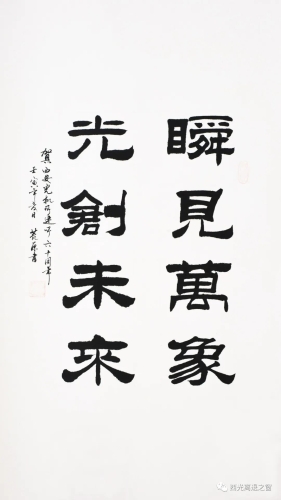 瞬見萬象
光創未來
賀西安光机所建所六十周年
壬寅年冬月 書